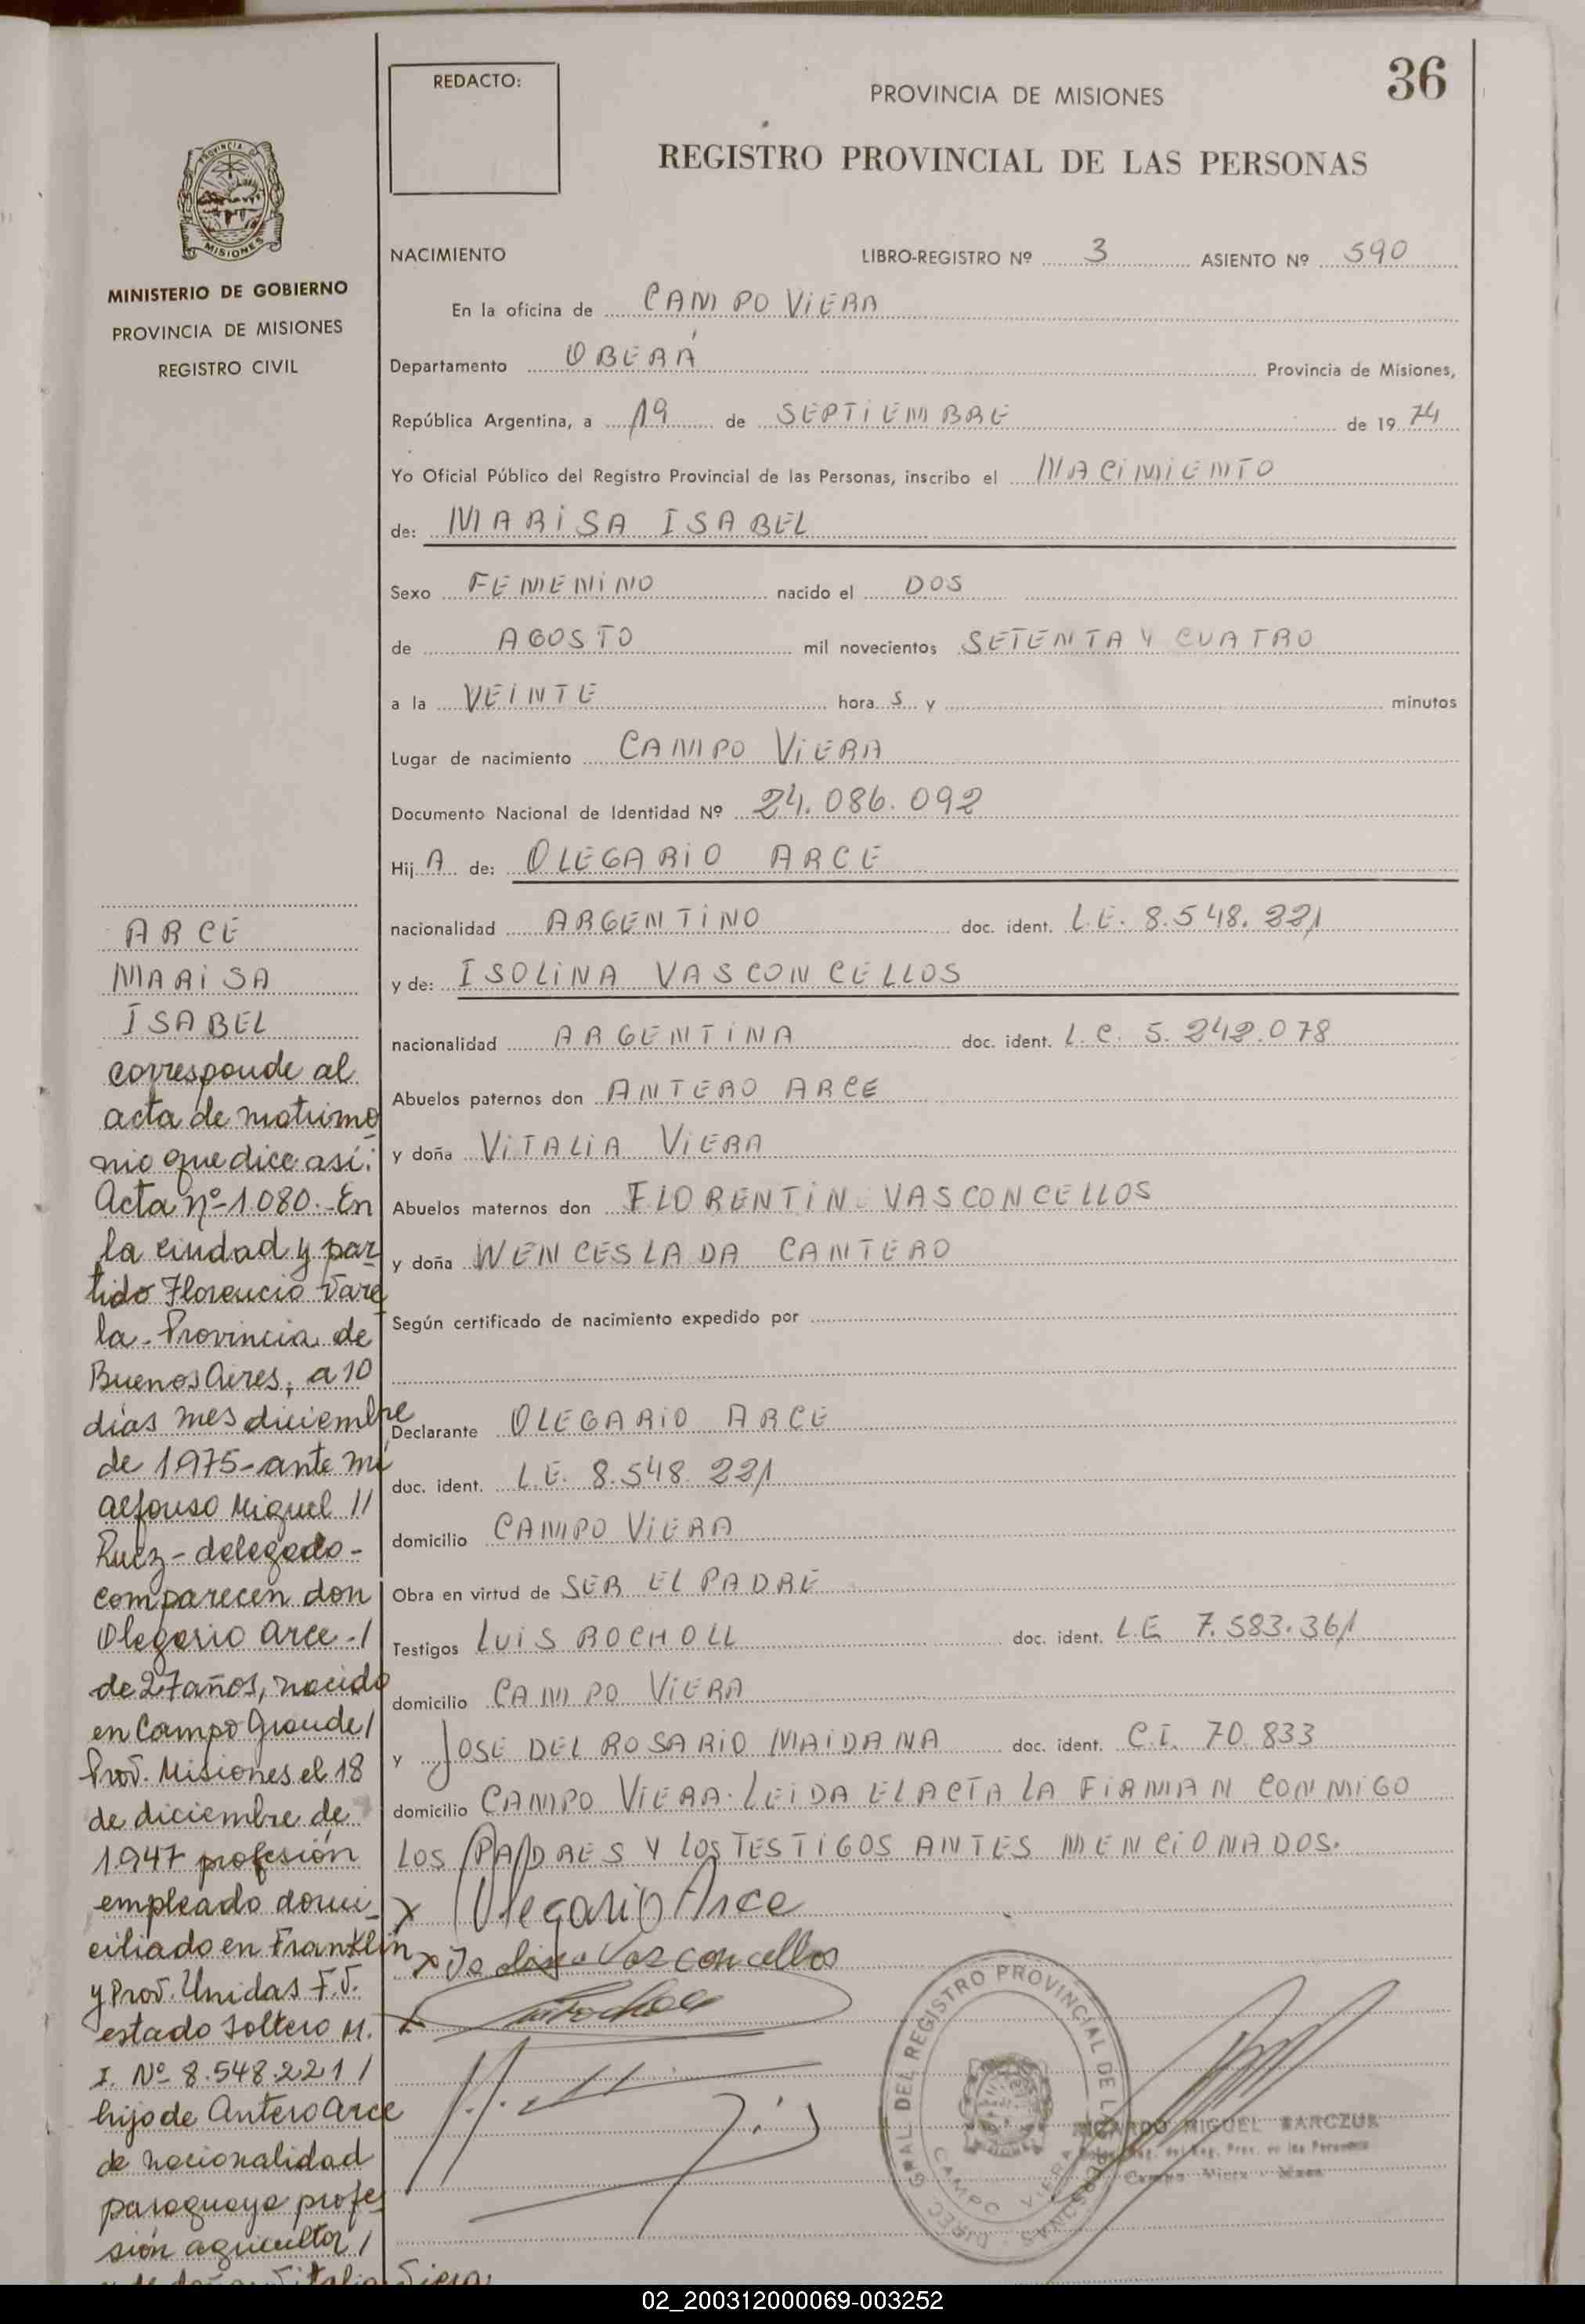 REDACTO:
PROVINCIA DE MISIONES
36
REGISTRO PROVINCIAL DE LAS PERSONAS
PROVINCIA
MISIONES
MINISTERIO DE GOBIERNO
PROVINCIA DE MISIONES
REGISTRO CIVIL
NACIMIENTO LIBRO-REGISTRO Nº 3 ASIENTO Nº 590
En la oficina de CAMPO VIERA
Departamento OBERÁ Provincia de Misiones,
República Argentina, a 19 de SEPTIEMBRE de 19 74
Yo Oficial Público del Registro Provincial de las Personas, inscribo el NACIMIENTO
de: MARISA ISABEL
Sexo FEMENINO nacido el DOS
de AGOSTO mil novecientos SETENTA Y CUATRO
a la VEINTE hora S y minutos
Lugar de nacimiento CAMPO VIERA
Documento Nacional de Identidad Nº 24.086.092
Hij A de: OLEGARIO ARCE
nacionalidad ARGENTINO doc. ident. L.E. 8.548.221
y de: ISOLINA VASCONCELLOS
nacionalidad ARGENTINA doc. ident. L.C. 5.242.078
Abuelos paternos don ANTERO ARCE
y doña VITALIA VIERA
Abuelos maternos don FLORENTIN VASCONCELLOS
y doña WENCESLADA CANTERO
Según certificado de nacimiento expedido por
Declarante OLEGARIO ARCE
doc. ident. L.E. 8.548.221
domicilio CAMPO VIERA
Obra en virtud de SER EL PADRE
Testigos LUIS ROCHOLL doc. ident. L.E 7.583.361
domicilio CAMPO VIERA
y JOSE DEL ROSARIO MAIDANA doc. ident. C.I. 70.833
domicilio CAMPO VIERA. LEIDA EL ACTA LA FIRMAN CONMIGO
LOS PADRES Y LOS TESTIGOS ANTES MENCIONADOS.
x Olegario Arce
x Isolina Vasconcellos
DIREC. GRAL DEL REGISTRO PROVINCIAL DE LAS PERSONAS
CAMPO VIERA
RICARDO MIGUEL BARCZUK
Campo Viera
ARCE
MARISA
ISABEL
corresponde al
acta de matrimo
nio que dice así:
Acta nº 1.080.- En
la ciudad y par
tido Florencio Vare
la - Provincia de
Buenos Aires, a 10
días mes diciembre
de 1975 - ante mí
Alfonso Miguel //
Ruez - delegado -
comparecen don
Olegario Arce - /
de 27 años, nacido
en Campo Grande /
Prov. Misiones el 18
de diciembre de
1947 profesión
empleado domi
ciliado en Franklin
y Prov. Unidas F.V.
estado soltero M.
I. Nº 8.548.221 /
hijo de Antero Arce
de nacionalidad
paraguaya profe
sión agricultor /
y de doña Vitalia Viera
02_200312000069-003252